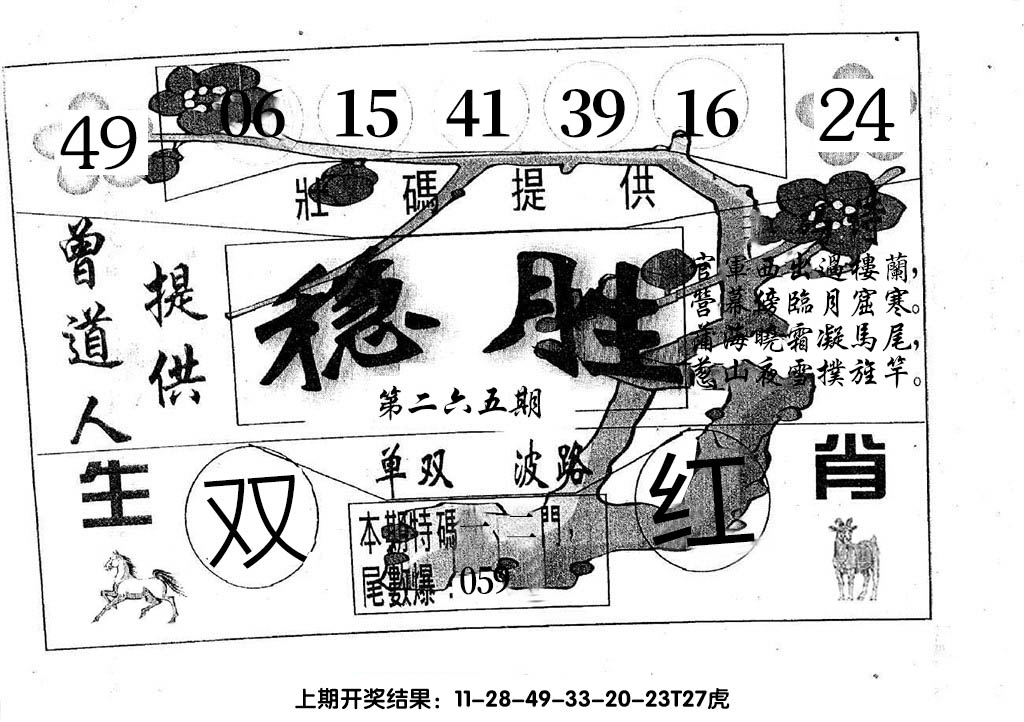 49 06 15 41 39 16 24
壯碼提供
曾道人
提供
穩胜
第二六五期
官軍西出過樓蘭，
營幕傍臨月窟寒。
蒲海曉霜凝馬尾，
葱山夜雪撲旌竿。
单双 波路
生肖
双
红
本期特碼一、二門，
尾數爆：059
上期开奖结果：11-28-49-33-20-23T27虎